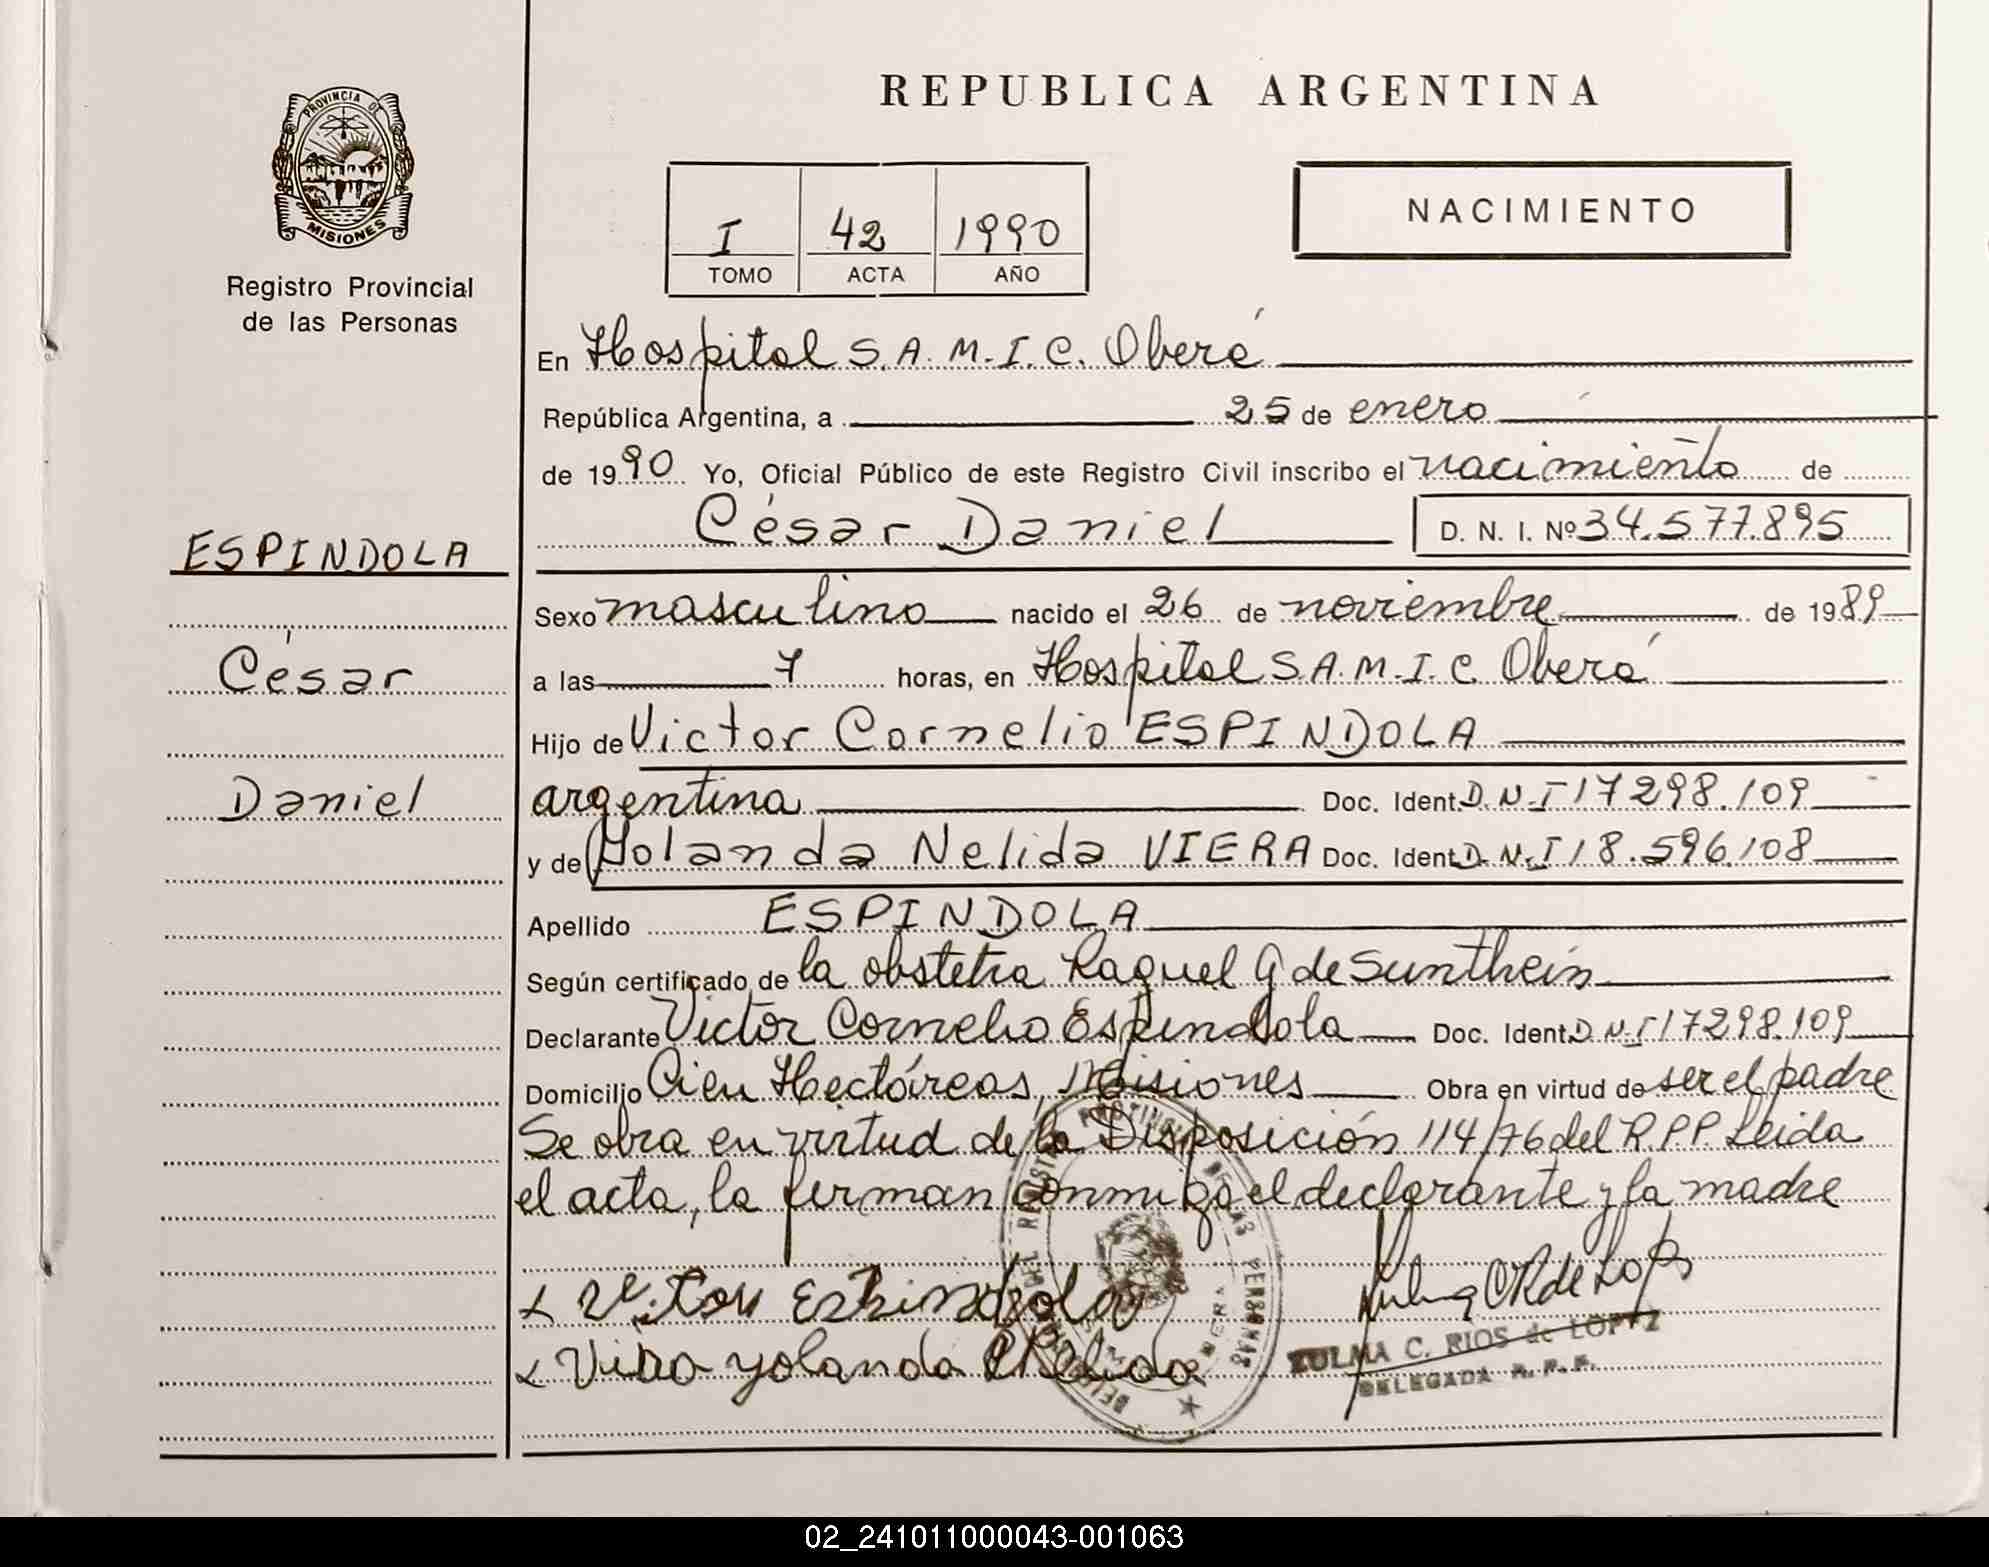 REPUBLICA ARGENTINA
PROVINCIA DE
MISIONES
Registro Provincial
de las Personas
I 42 1990
TOMO ACTA AÑO
NACIMIENTO
En Hospital S.A.M.I.C. Oberá
República Argentina, a 25 de enero
de 1990 Yo, Oficial Público de este Registro Civil inscribo el nacimiento de
César Daniel D. N. I. Nº 34.577.895
ESPINDOLA
César
Daniel
Sexo masculino nacido el 26 de noviembre de 1989
a las 7 horas, en Hospital S.A.M.I.C. Oberá
Hijo de Victor Cornelio ESPINDOLA
argentina Doc. Ident. D.N.I 17298.109
y de Yolanda Nelida VIERA Doc. Ident. D.N.I 18.596.108
Apellido ESPINDOLA
Según certificado de la obstetra Raquel G de Sunthein
Declarante Victor Cornelio Espindola Doc. Ident. D.N.I 17298.109
Domicilio Cien Hectáreas, Misiones Obra en virtud de ser el padre
Se obra en virtud de la Disposición 114/76 del R.P.P. Leida
el acta, la firman conmigo el declarante y la madre
Espindola
yolanda
ZULMA C. RIOS de LOPEZ
DELEGADA R. P. P.
DE LAS PERSONAS
02_241011000043-001063